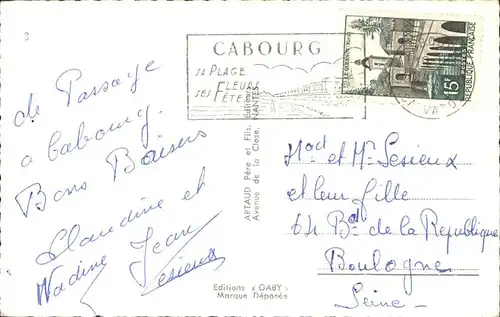 CABOURG
SA PLAGE
SES FLEURS
FÊTES
15F
REPUBLIQUE FRANÇAISE
de Passage
a Cabourg.
Bons Baisers
Claudine et
Nadine Jean
Lesieux
ARTAUD Père et Fils, Editeurs
Avenue de la Close, NANTES
Editions « GABY »
Marque Déposée
et Mr Lesieux
et leur fille
64 Bd de la République
Boulogne
Seine